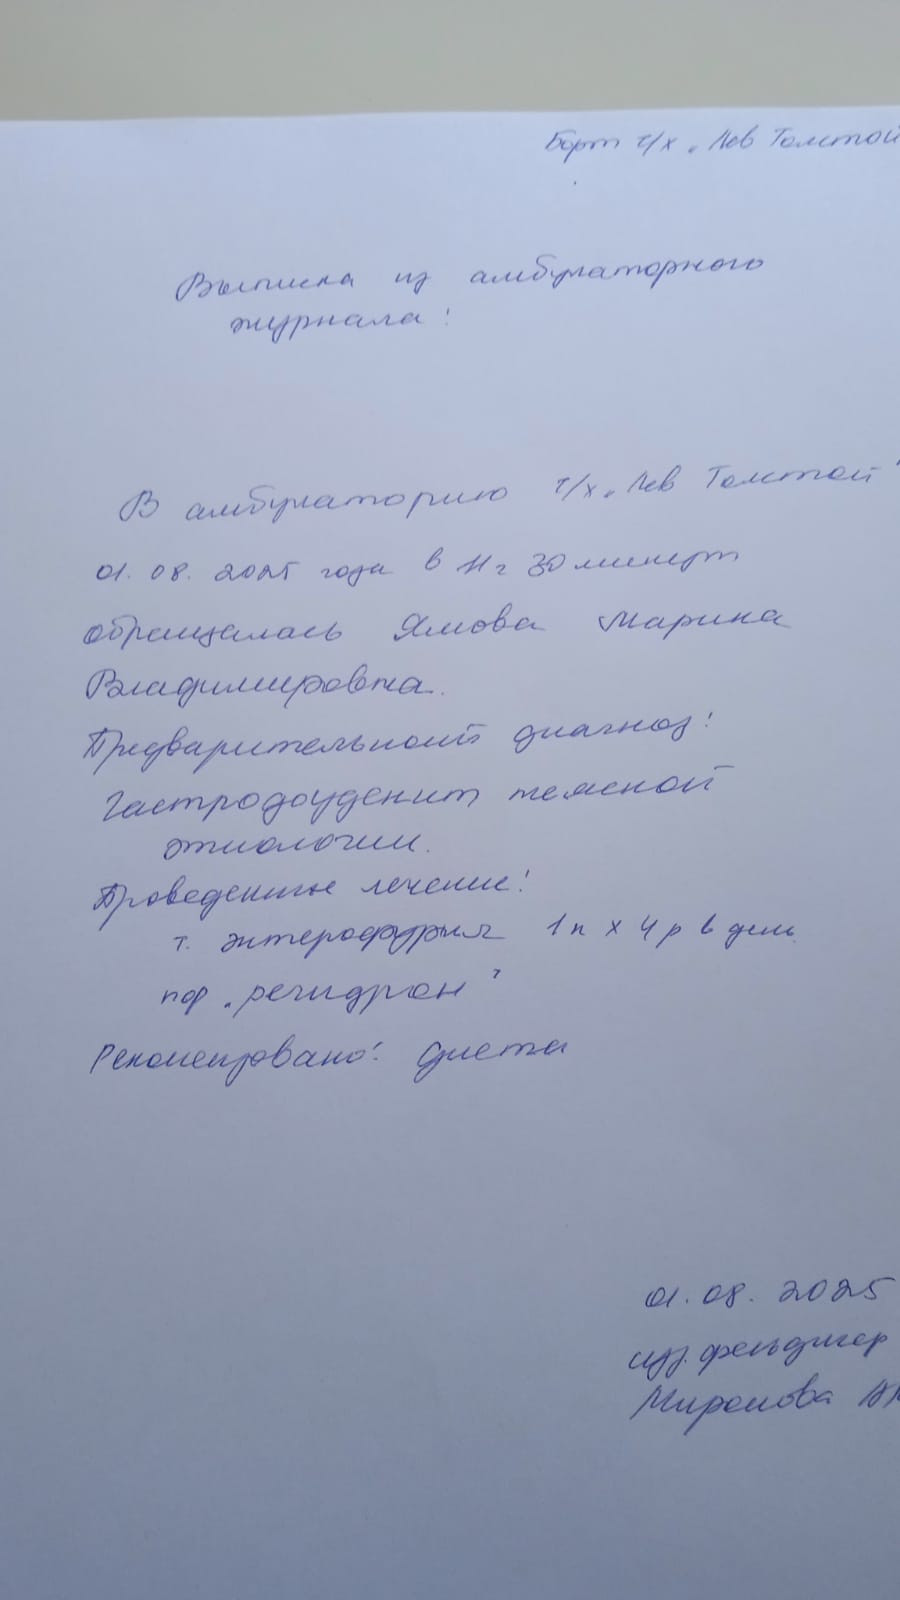 Борт т/х „Лев Толстой
Выписка из амбулаторного
журнала:
В амбулаторию т/х „Лев Толстой"
01.08.2025 года в 11 г 30 минут
обращалась Ямова Марина
Владимировна.
Предварительный диагноз:
Гастродоуденит неясной
этиологии.
Проведенное лечение:
т. энтерофурил 1п х 4 р в день
пор „регидрон"
Рекомендовано: диета
01.08.2025
суд. фельдшер
Миронова